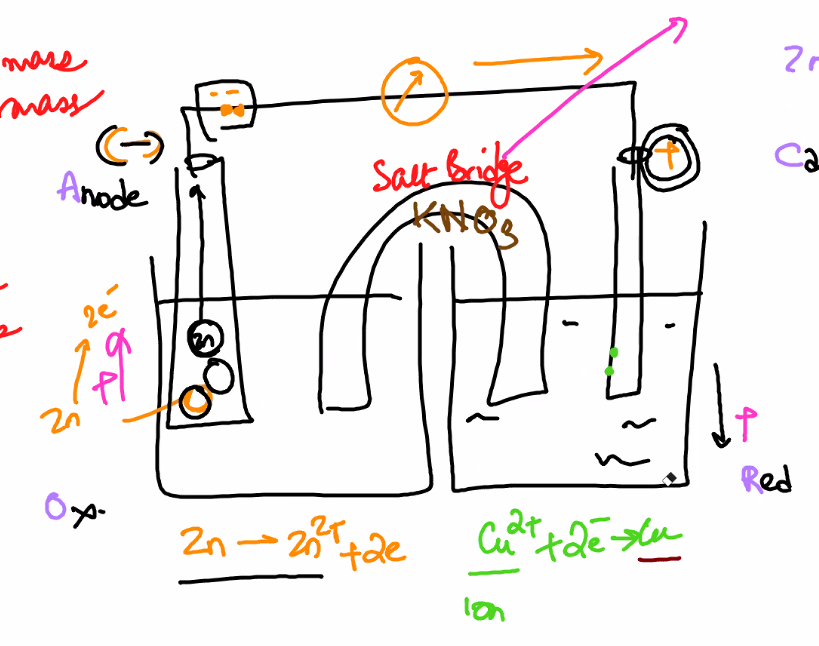 mass
mass
Zn
Ca
Anode
Salt Bridge
KNO₃
+
2e⁻
Zn
Zn
Ox.
Red
Zn → Zn²⁺ + 2e
Cu²⁺ + 2e⁻ → Cu
Ion